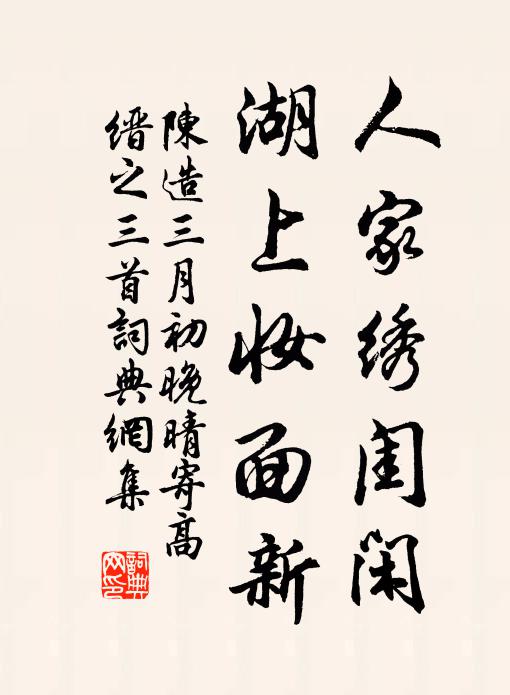 人家绣闺闲
湖上妆面新
陳造三月初晚晴寄高
缙之三首詞典網集
詞典网印